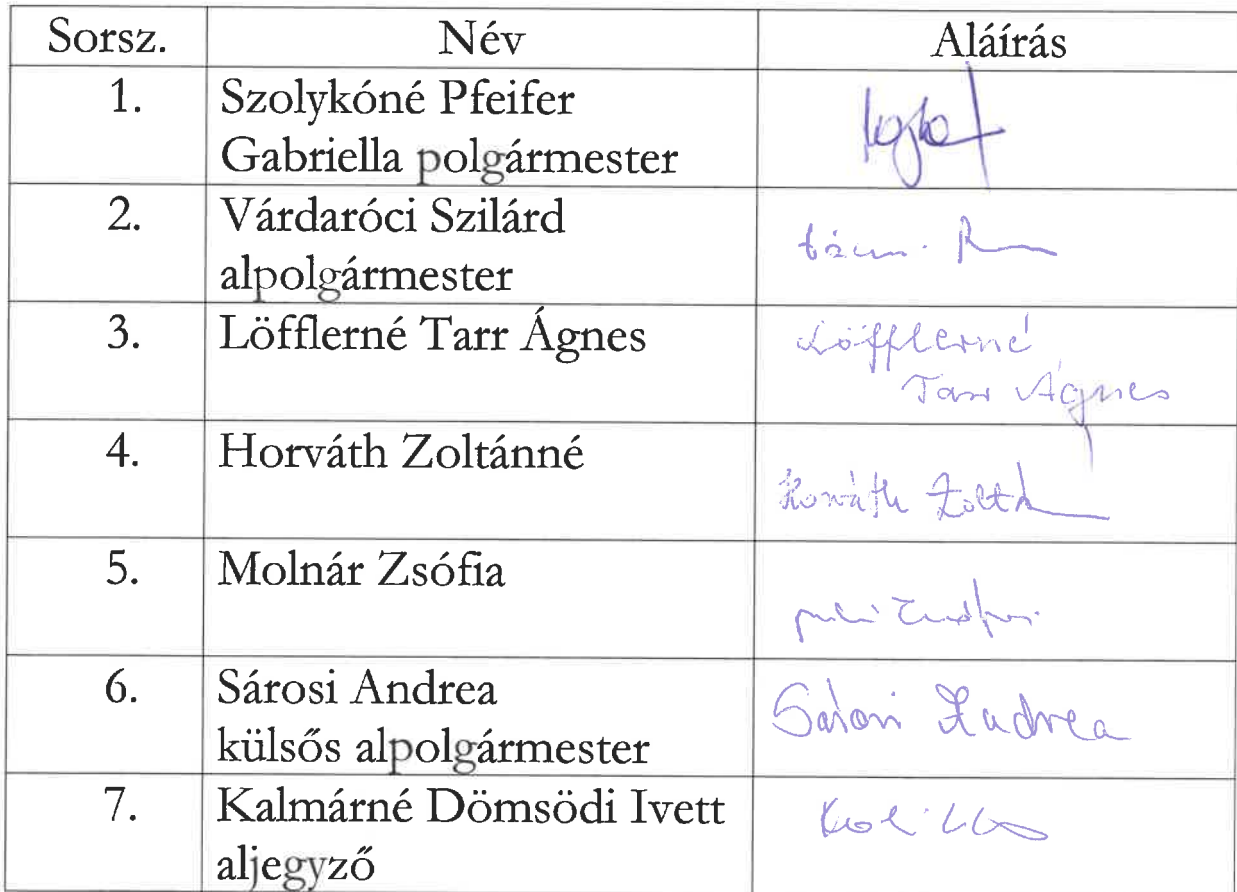 Sorsz. Név Aláírás
1. Szolykóné Pfeifer
Gabriella polgármester
2. Várdaróci Szilárd
alpolgármester
3. Löfflerné Tarr Ágnes Löfflerné
Tarr Ágnes
4. Horváth Zoltánné
Horváth Zoltán
5. Molnár Zsófia
6. Sárosi Andrea Sárosi Andrea
külsős alpolgármester
7. Kalmárné Dömsödi Ivett
aljegyző